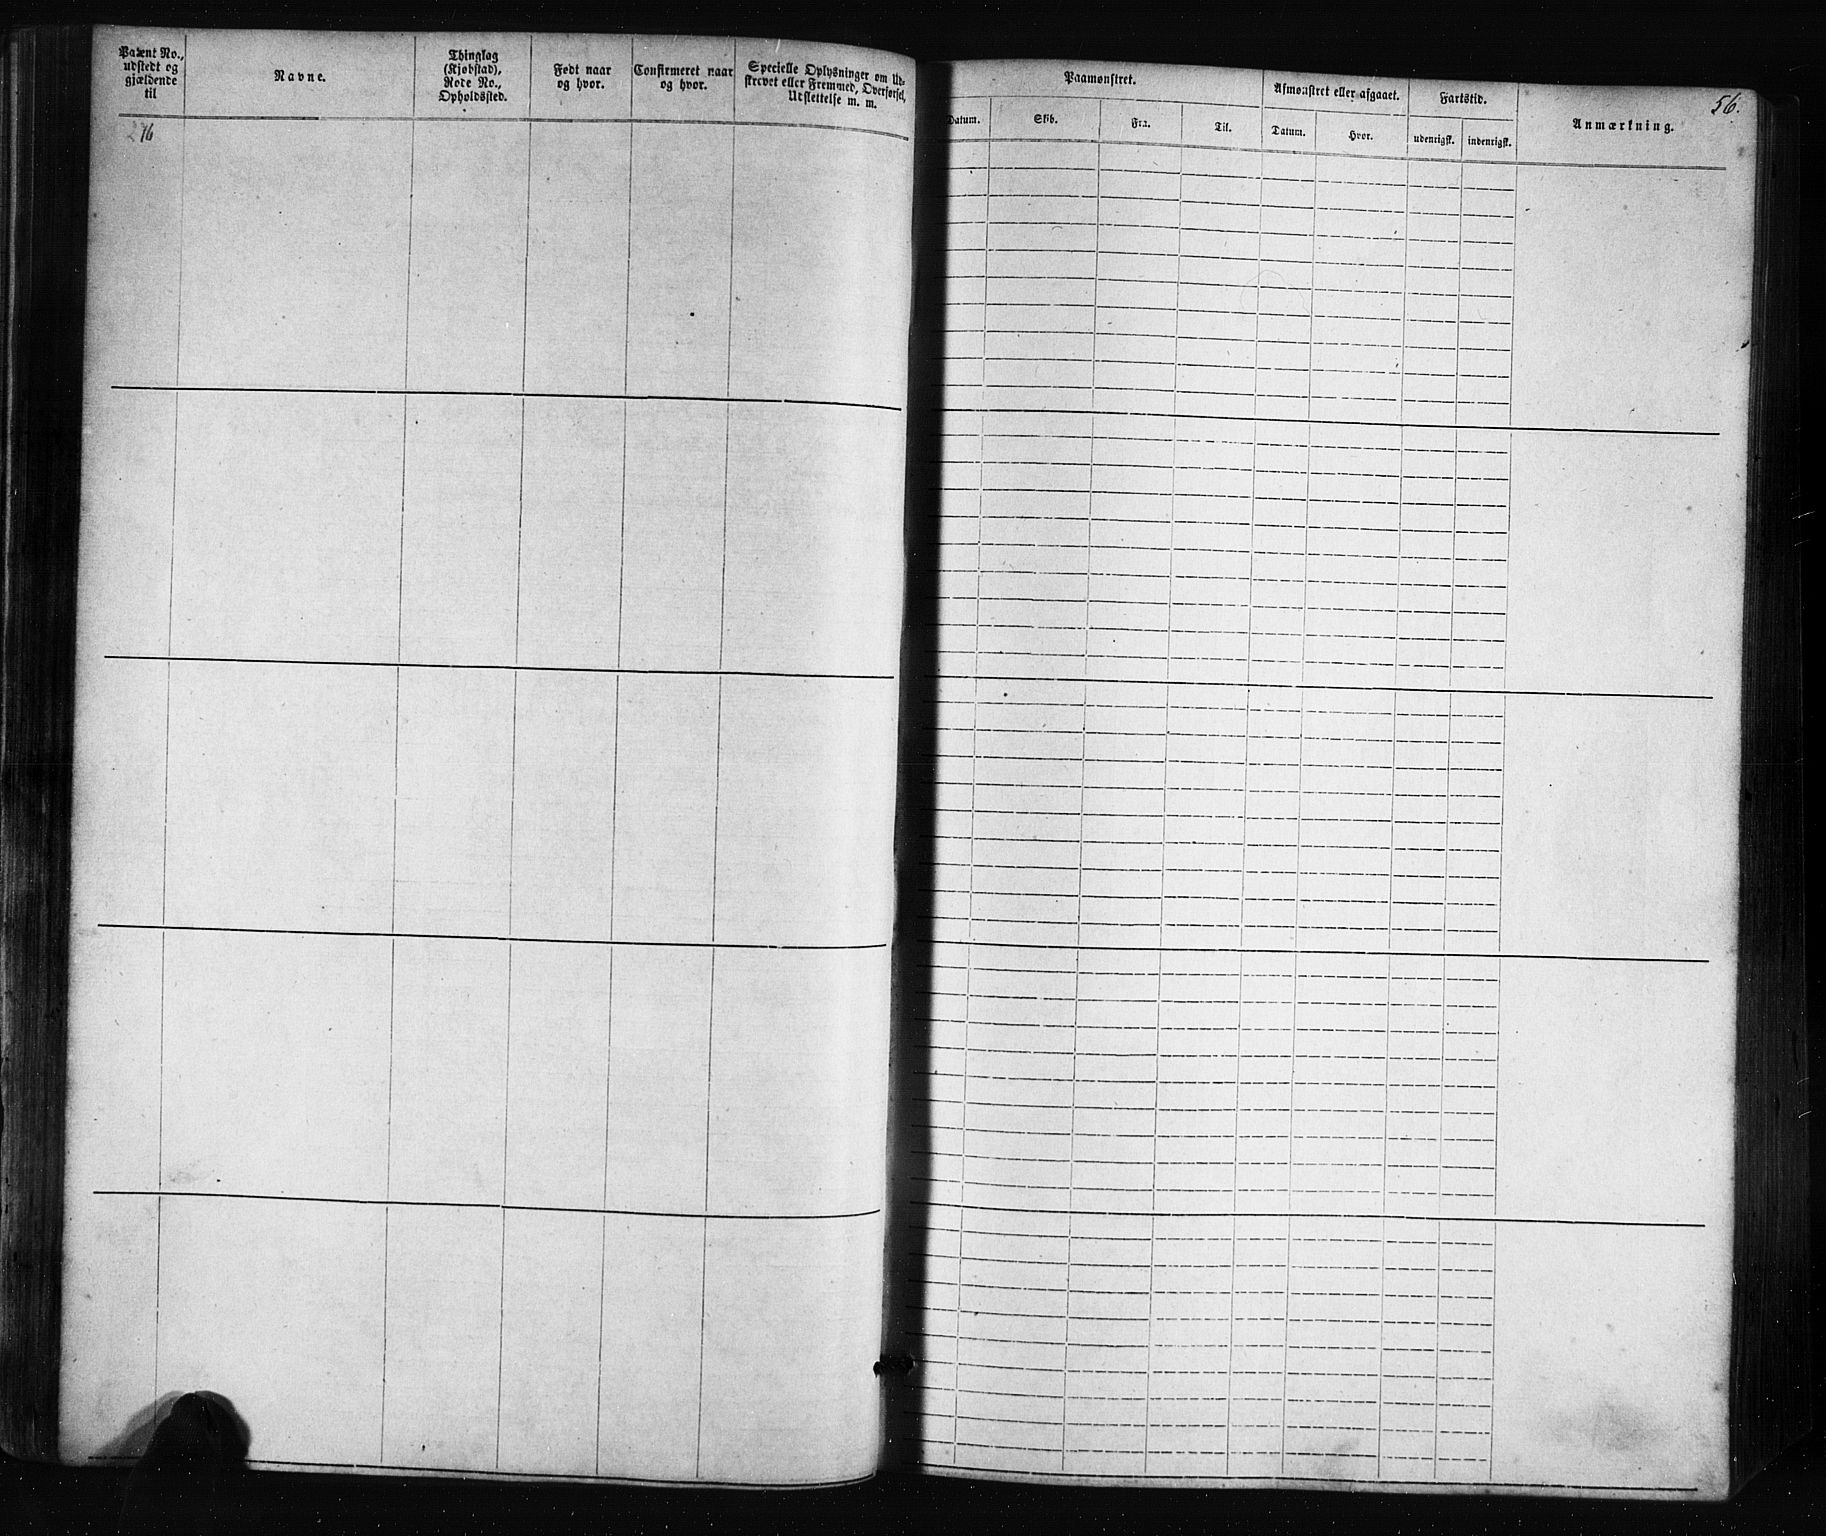 Patent No.,
udstedt og
gjældende
til
Navne.
Thinglag
(Kjøbstad),
Rode No.,
Opholdssted.
Født naar
og hvor.
Confirmeret naar
og hvor.
Specielle Oplysninger om Ud-
skrevet eller Fremmed, Overførsel,
Udslettelse m. m.
276
56.
Paamønstret.
Afmønstret eller afgaaet.
Fartstid.
Anmærkning.
Datum.
Skib.
Fra.
Til.
Datum.
Hvor.
udenrigsk.
indenrigsk.